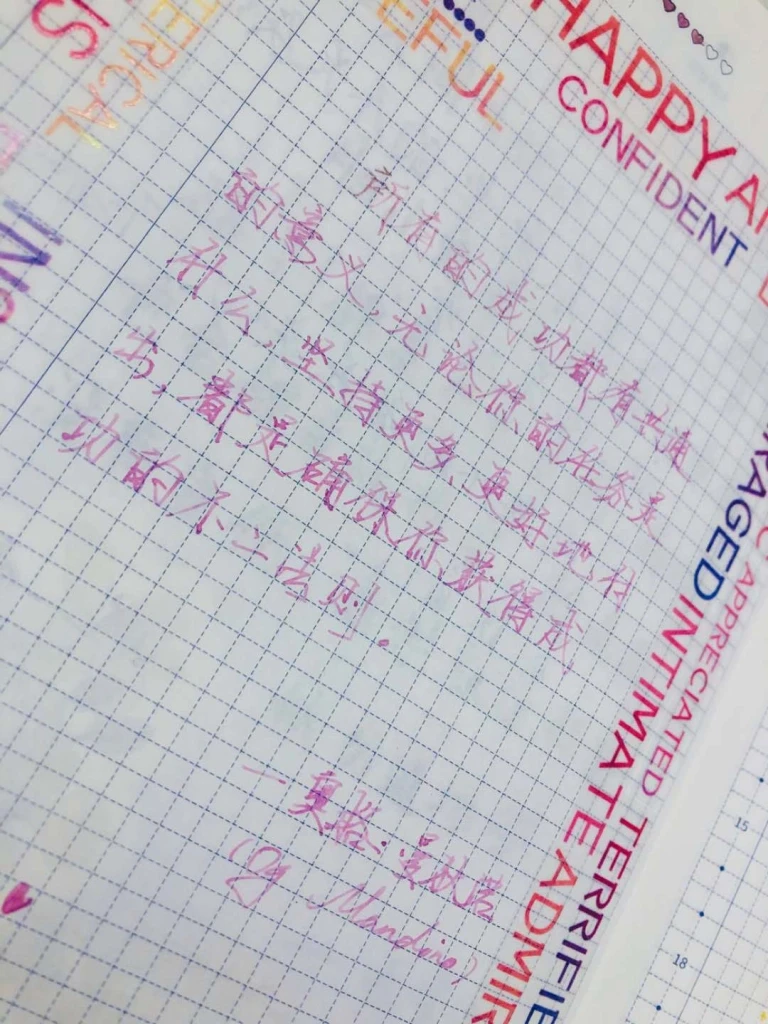 HAPPY
CONFIDENT
EFUL
ERICAL
所有的成功都有共通
的意义,无论你的任务是
什么,坚持更多、更好地付
出,都是确保你获得成
功的不二法则。
一奥格·曼狄诺
(Og Mandino)
RAGED
APPRECIATED
INTIMATE
TERRIFIE
ADMIR
15
18